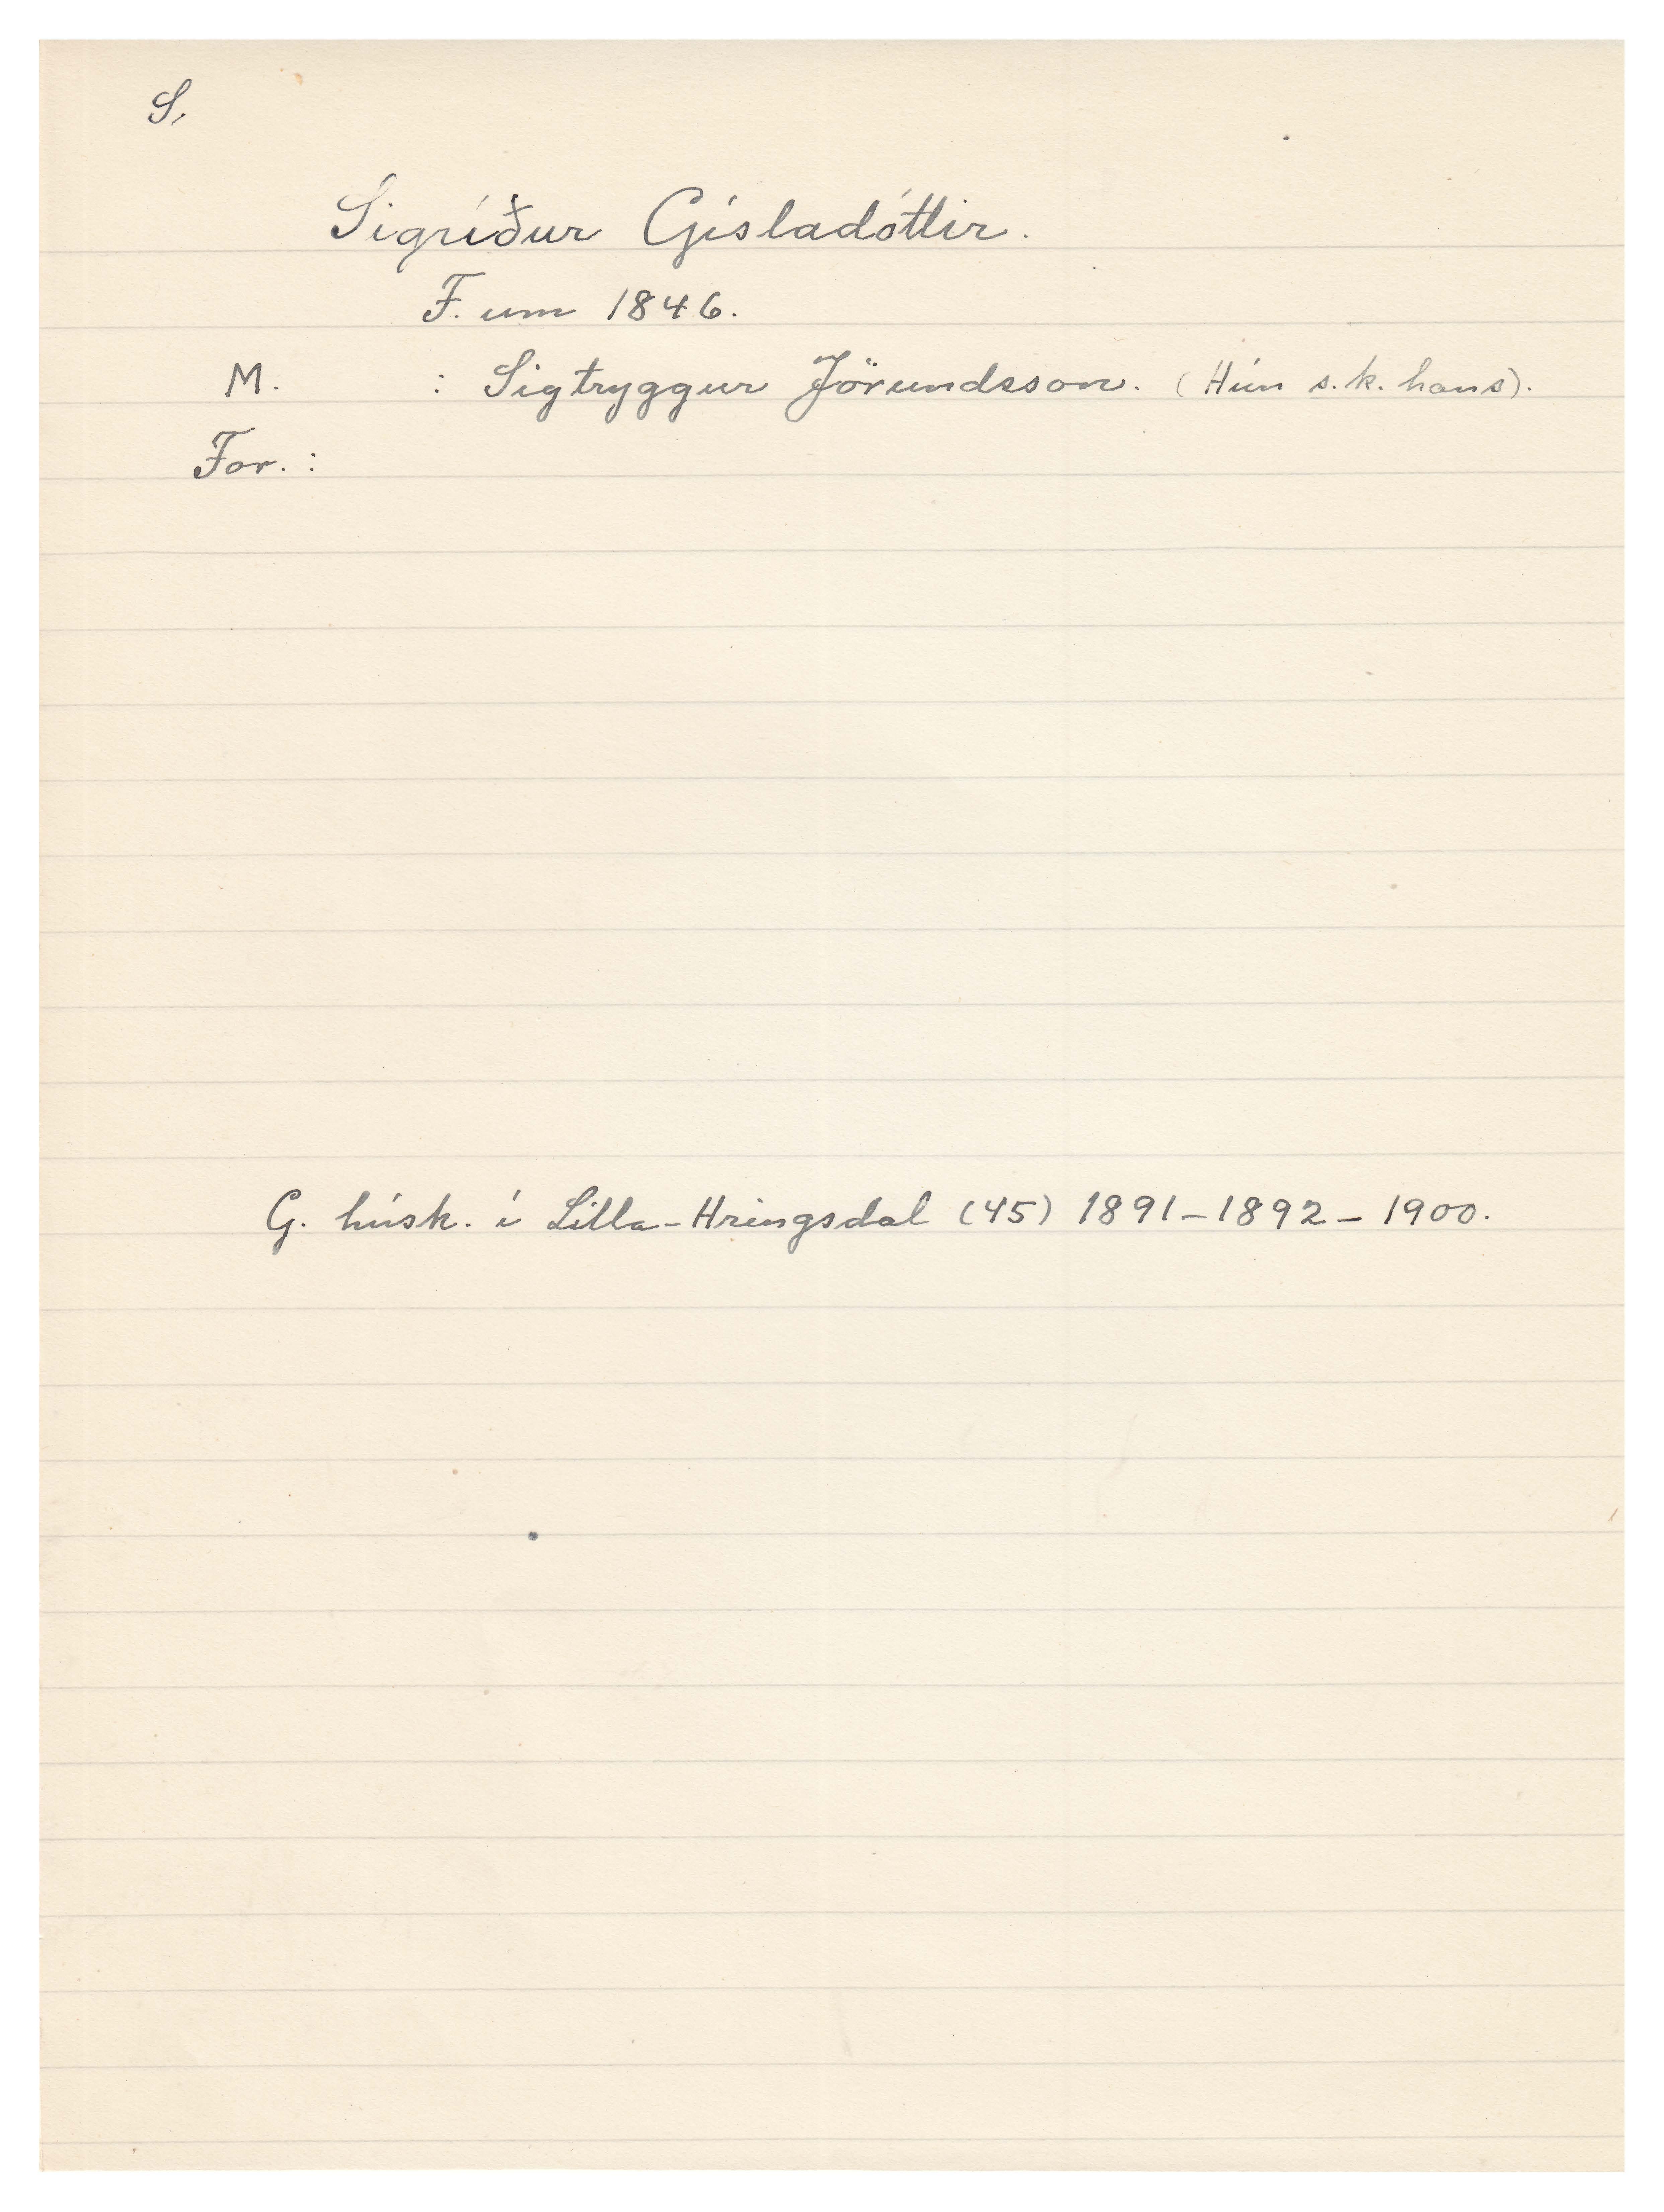 S.
Sigríður Gísladóttir.
F. um 1846.
M. : Sigtryggur Jörundsson. (Hún s.k. hans).
For. :
G. húsk. í Litla-Hringsdal (45) 1891-1892-1900.